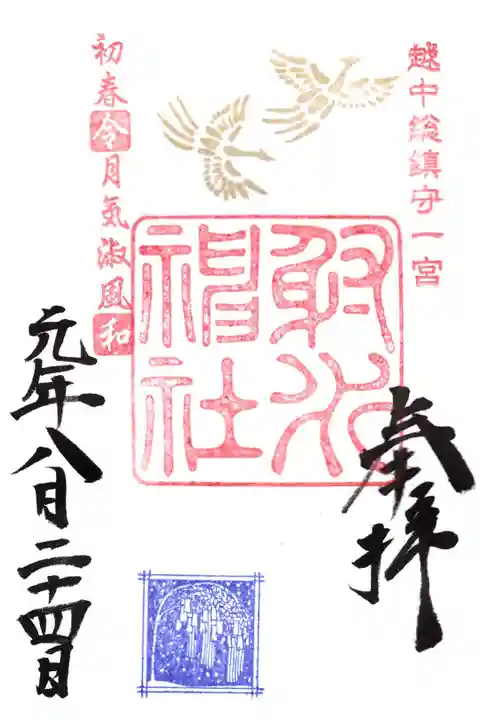 越中総鎮守一宮
奉拝
射水神社
初春令月気淑風和
元年八月二十四日